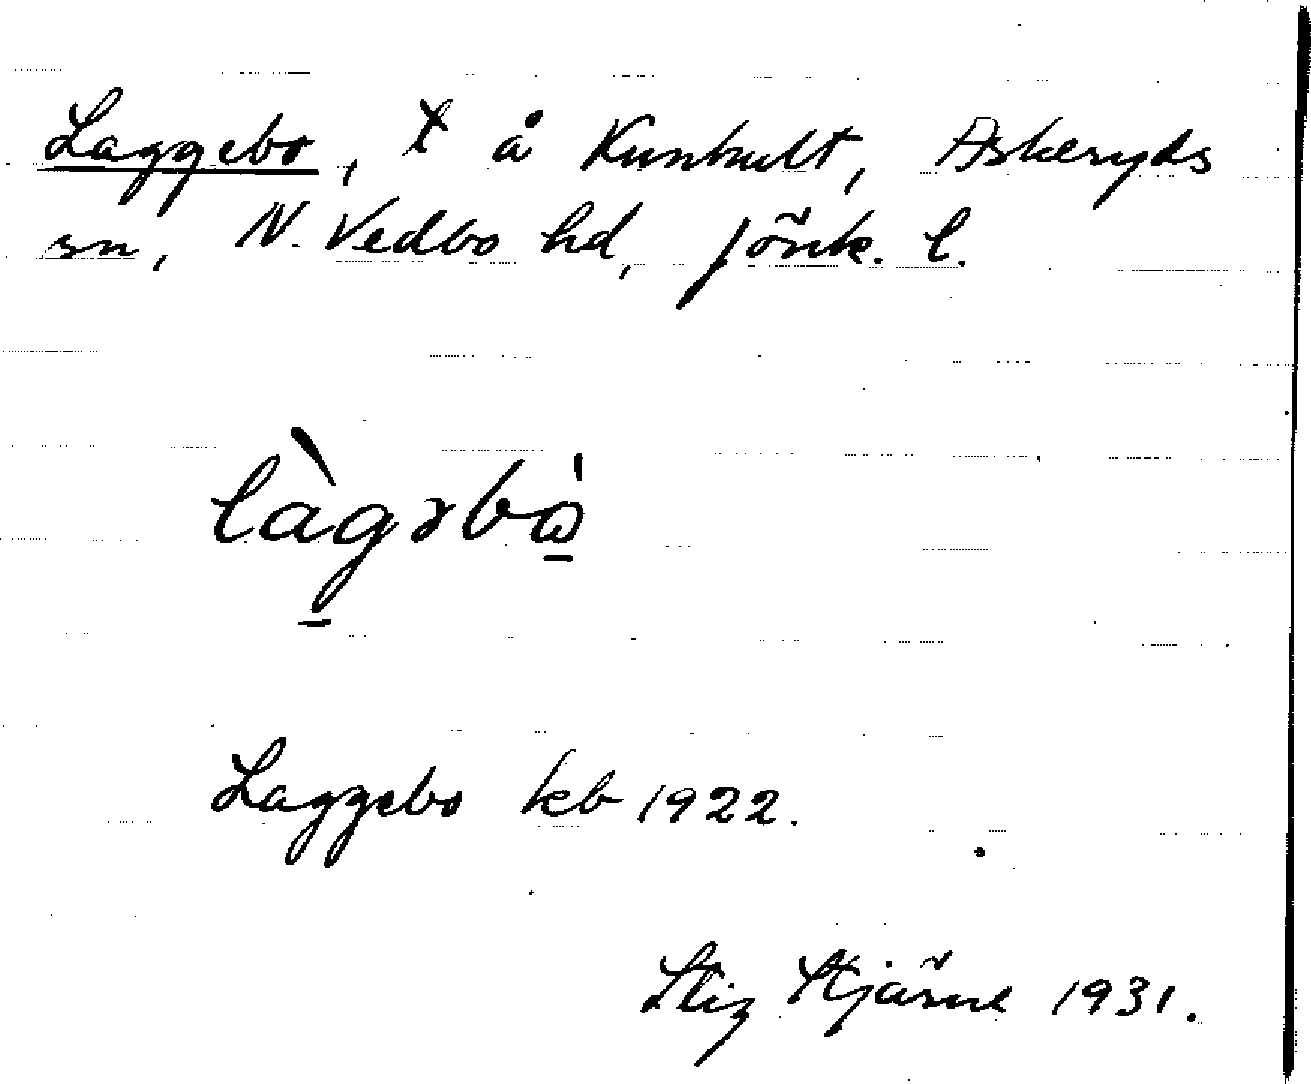 Laggebo, t å Kunhult, Askeryds
sn, N. Vedbo hd, Jönk. l.
làgəbo̠
Laggebo kb 1922.
Stig Stjärne 1931.